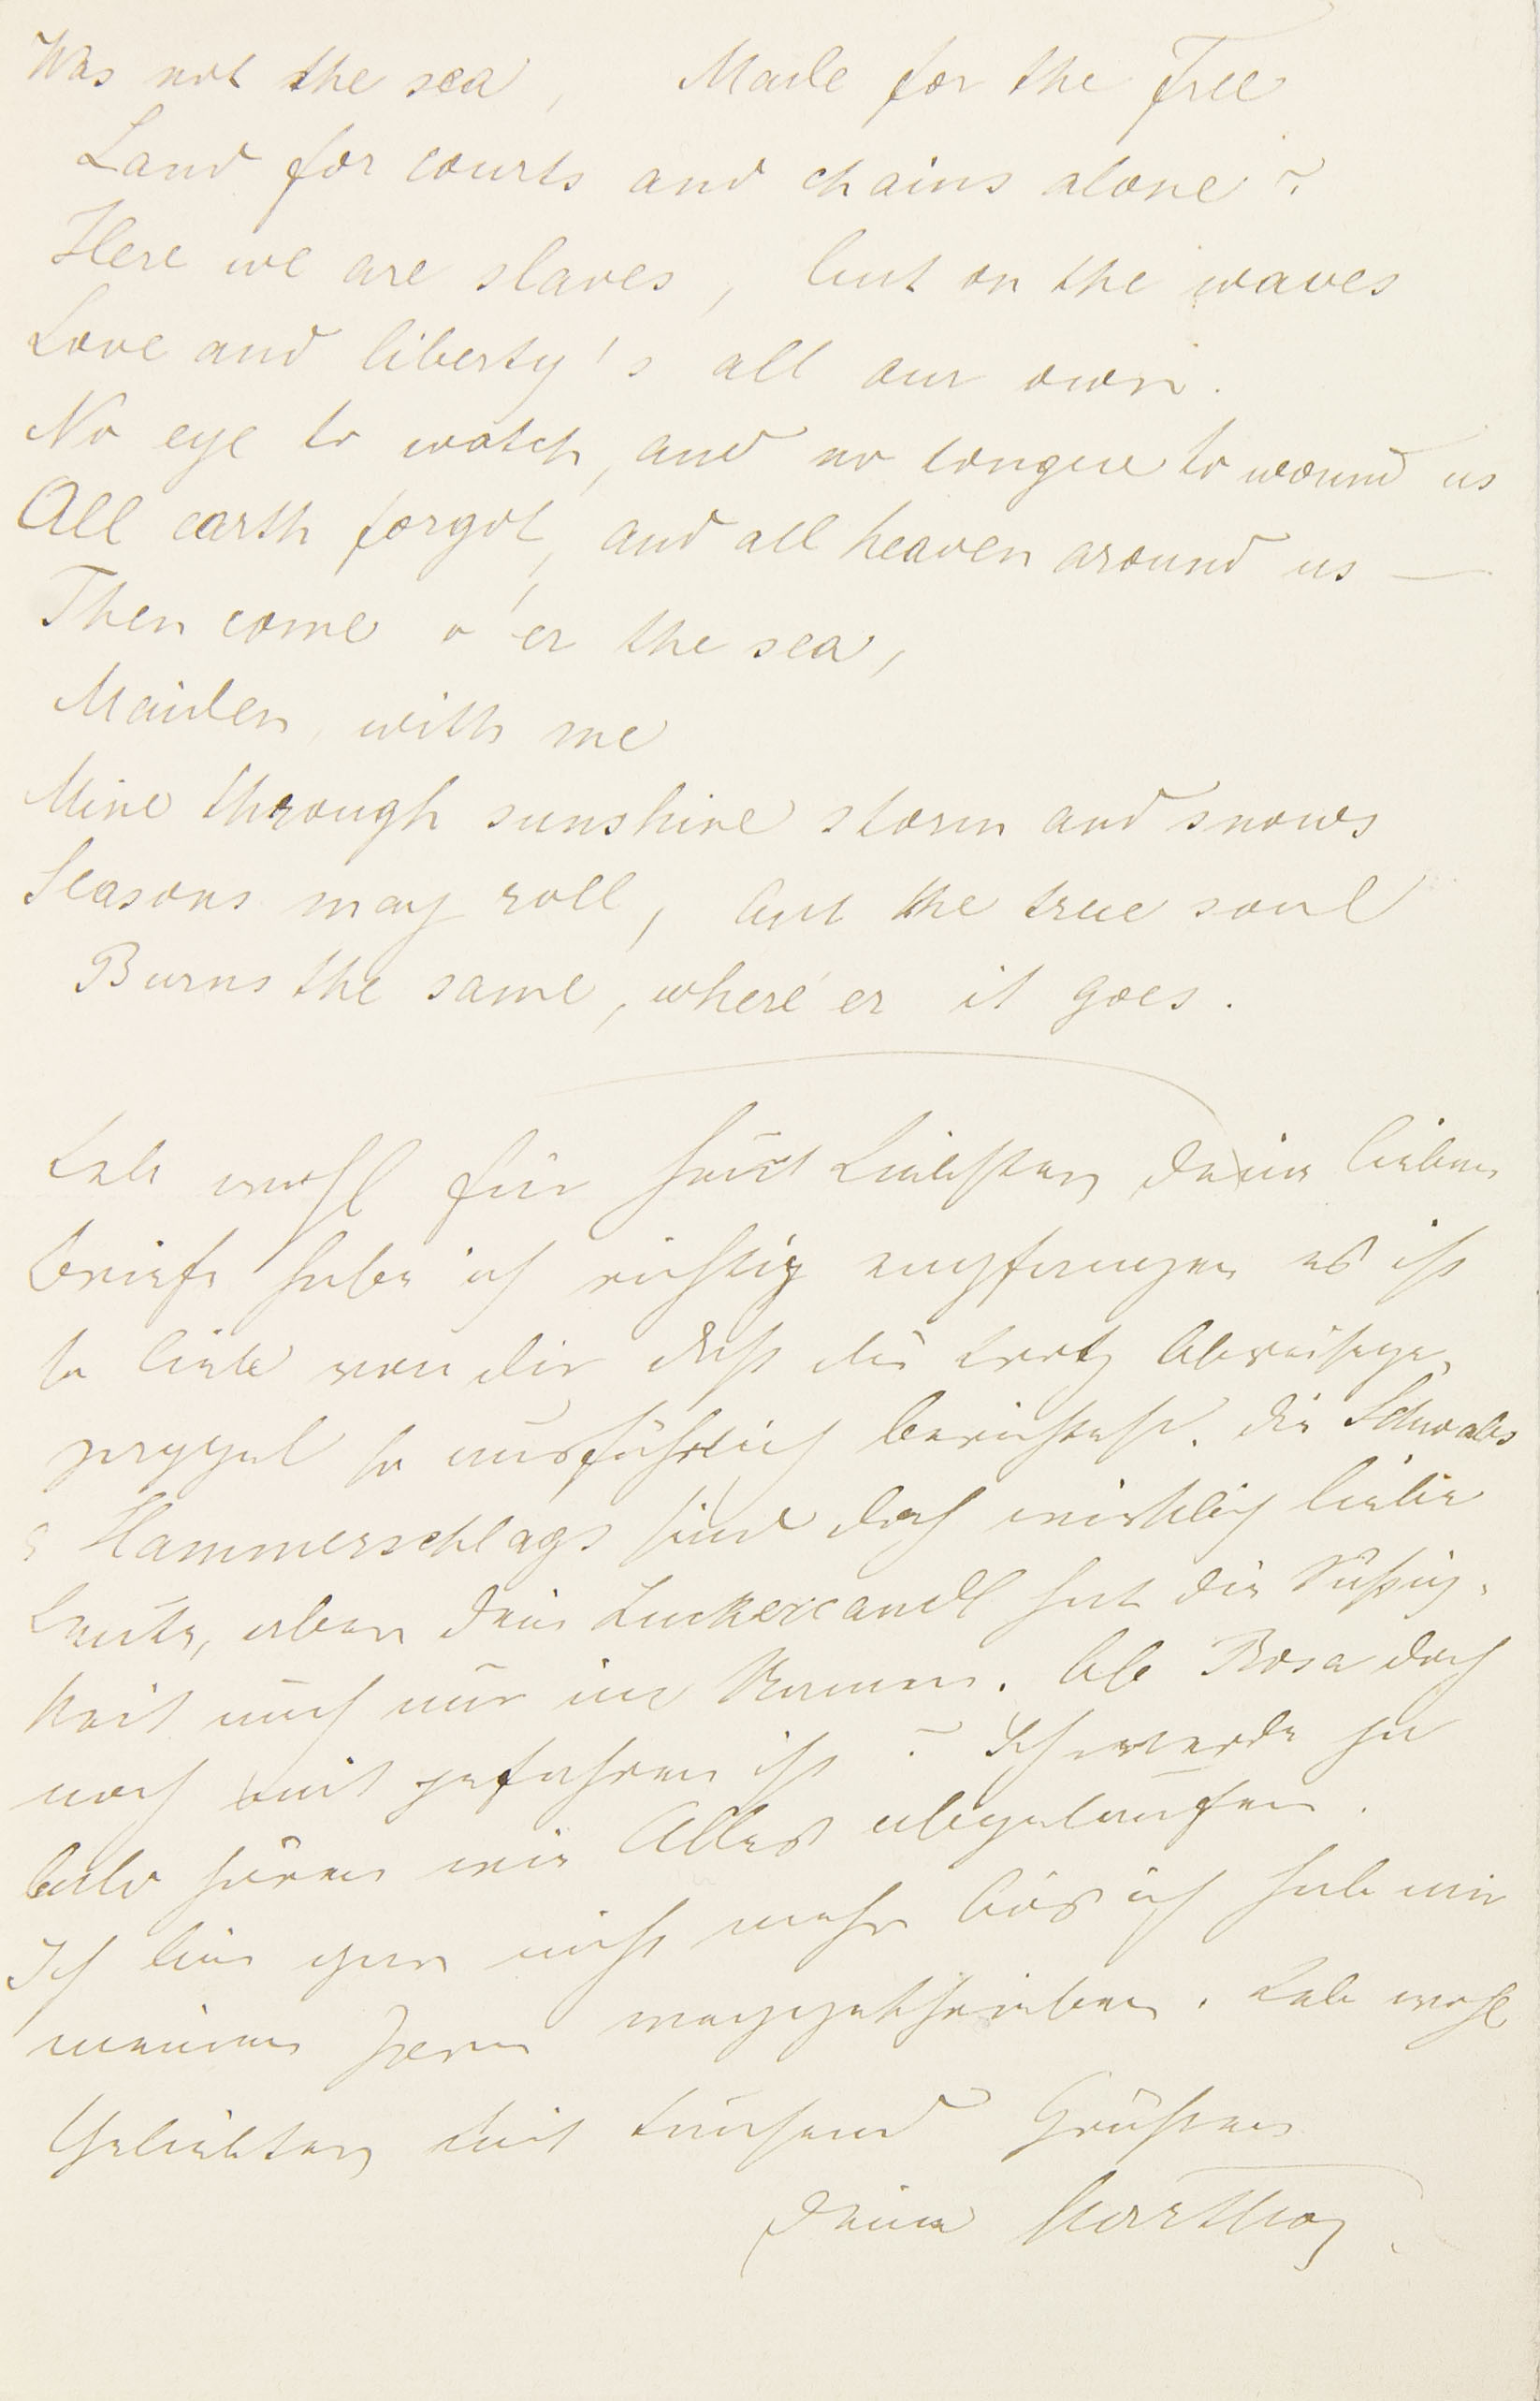 Was not the sea, Made for the Free
Land for courts and chains alone?
Here we are slaves, but on the waves
Love and liberty's all our own.
No eye to watch, and no tongue to wound us
All earth forgot, and all heaven around us —
Then come o'er the sea,
Maiden, with me
Mine through sunshine storm and snows
Seasons may roll, but the true soul
Burns the same, where'er it goes.
Leb wohl für heut Liebster, Deine lieben
Briefe habe ich richtig empfangen es ist
so lieb von dir daß du trotz Abreise
so ausführlich berichtest. Die Schwabs
Hammerschlags sind doch wirklich liebe
Leute, aber dein Zuckercandl hat die Süßig-
keit auch nur im Namen. Ob Rosa doch
noch mit gefahren ist? Ich werde ja
bald hören wie Alles abgelaufen.
Ich bin gar nicht mehr bös ich hab mir
meinen Zorn weggeschrieben. Leb wohl
Geliebter, mit tausend Grüßen
Deine Martha